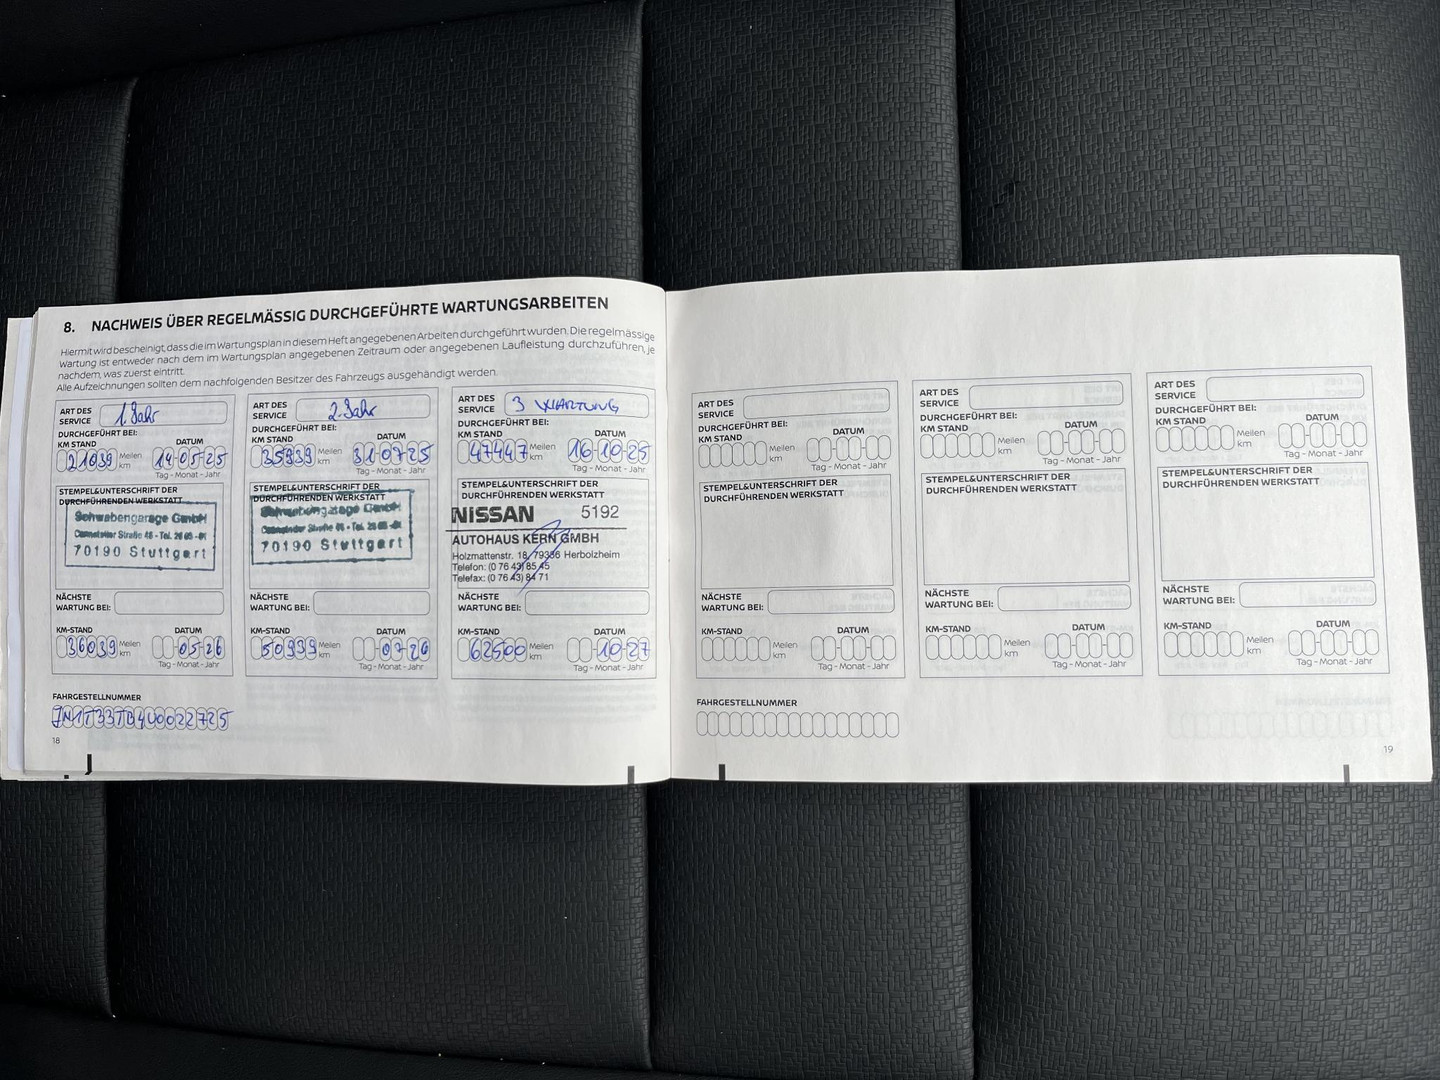 8. NACHWEIS ÜBER REGELMÄSSIG DURCHGEFÜHRTE WARTUNGSARBEITEN
Hiermit wird bescheinigt, dass die im Wartungsplan in diesem Heft angegebenen Arbeiten durchgeführt wurden. Die regelmässige
Wartung ist entweder nach dem im Wartungsplan angegebenen Zeitraum oder angegebenen Laufleistung durchzuführen, je
nachdem, was zuerst eintritt.
Alle Aufzeichnungen sollten dem nachfolgenden Besitzer des Fahrzeugs ausgehändigt werden.
ART DES
SERVICE 1. Jahr
DURCHGEFÜHRT BEI:
KM STAND DATUM
21039 Meilen km 14-05-25
Tag - Monat - Jahr
STEMPEL&UNTERSCHRIFT DER
DURCHFÜHRENDEN WERKSTATT
Schwabengarage GmbH
Cannstatter Straße 46 - Tel.
70190 Stuttgart
NÄCHSTE
WARTUNG BEI:
KM-STAND DATUM
36039 Meilen km 05-26
Tag - Monat - Jahr
FAHRGESTELLNUMMER
JN1T33TB4U0022725
18
ART DES
SERVICE 2. Jahr
DURCHGEFÜHRT BEI:
KM STAND DATUM
35939 Meilen km 31-07-25
Tag - Monat - Jahr
STEMPEL&UNTERSCHRIFT DER
DURCHFÜHRENDEN WERKSTATT
Schwabengarage GmbH
Cannstatter Straße 46 - Tel.
70190 Stuttgart
NÄCHSTE
WARTUNG BEI:
KM-STAND DATUM
50939 Meilen km 07-26
Tag - Monat - Jahr
ART DES
SERVICE 3 WARTUNG
DURCHGEFÜHRT BEI:
KM STAND DATUM
47447 Meilen km 16-10-25
Tag - Monat - Jahr
STEMPEL&UNTERSCHRIFT DER
DURCHFÜHRENDEN WERKSTATT
NISSAN 5192
AUTOHAUS KERN GMBH
Holzmattenstr. 18, 79336 Herbolzheim
Telefon: (0 76 43) 85 45
Telefax: (0 76 43) 84 71
NÄCHSTE
WARTUNG BEI:
KM-STAND DATUM
62500 Meilen km 10-27
Tag - Monat - Jahr
ART DES
SERVICE
DURCHGEFÜHRT BEI:
KM STAND DATUM
Meilen km
Tag - Monat - Jahr
STEMPEL&UNTERSCHRIFT DER
DURCHFÜHRENDEN WERKSTATT
NÄCHSTE
WARTUNG BEI:
KM-STAND DATUM
Meilen km
Tag - Monat - Jahr
FAHRGESTELLNUMMER
ART DES
SERVICE
DURCHGEFÜHRT BEI:
KM STAND DATUM
Meilen km
Tag - Monat - Jahr
STEMPEL&UNTERSCHRIFT DER
DURCHFÜHRENDEN WERKSTATT
NÄCHSTE
WARTUNG BEI:
KM-STAND DATUM
Meilen km
Tag - Monat - Jahr
ART DES
SERVICE
DURCHGEFÜHRT BEI:
KM STAND DATUM
Meilen km
Tag - Monat - Jahr
STEMPEL&UNTERSCHRIFT DER
DURCHFÜHRENDEN WERKSTATT
NÄCHSTE
WARTUNG BEI:
KM-STAND DATUM
Meilen km
Tag - Monat - Jahr
19